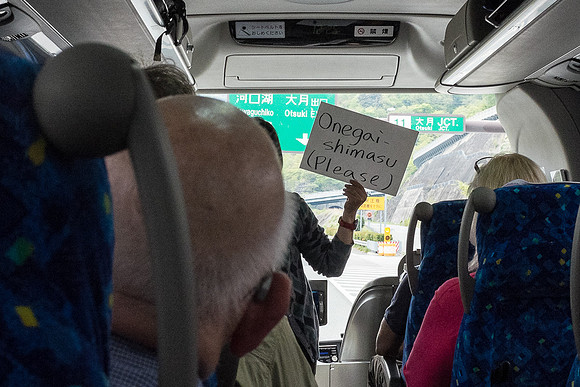 シートベルトを
おしめください
禁煙
河口湖 大月出口
Otsuki
11 大月 JCT.
Otsuki JCT.
Onegai-
shimasu
(Please)